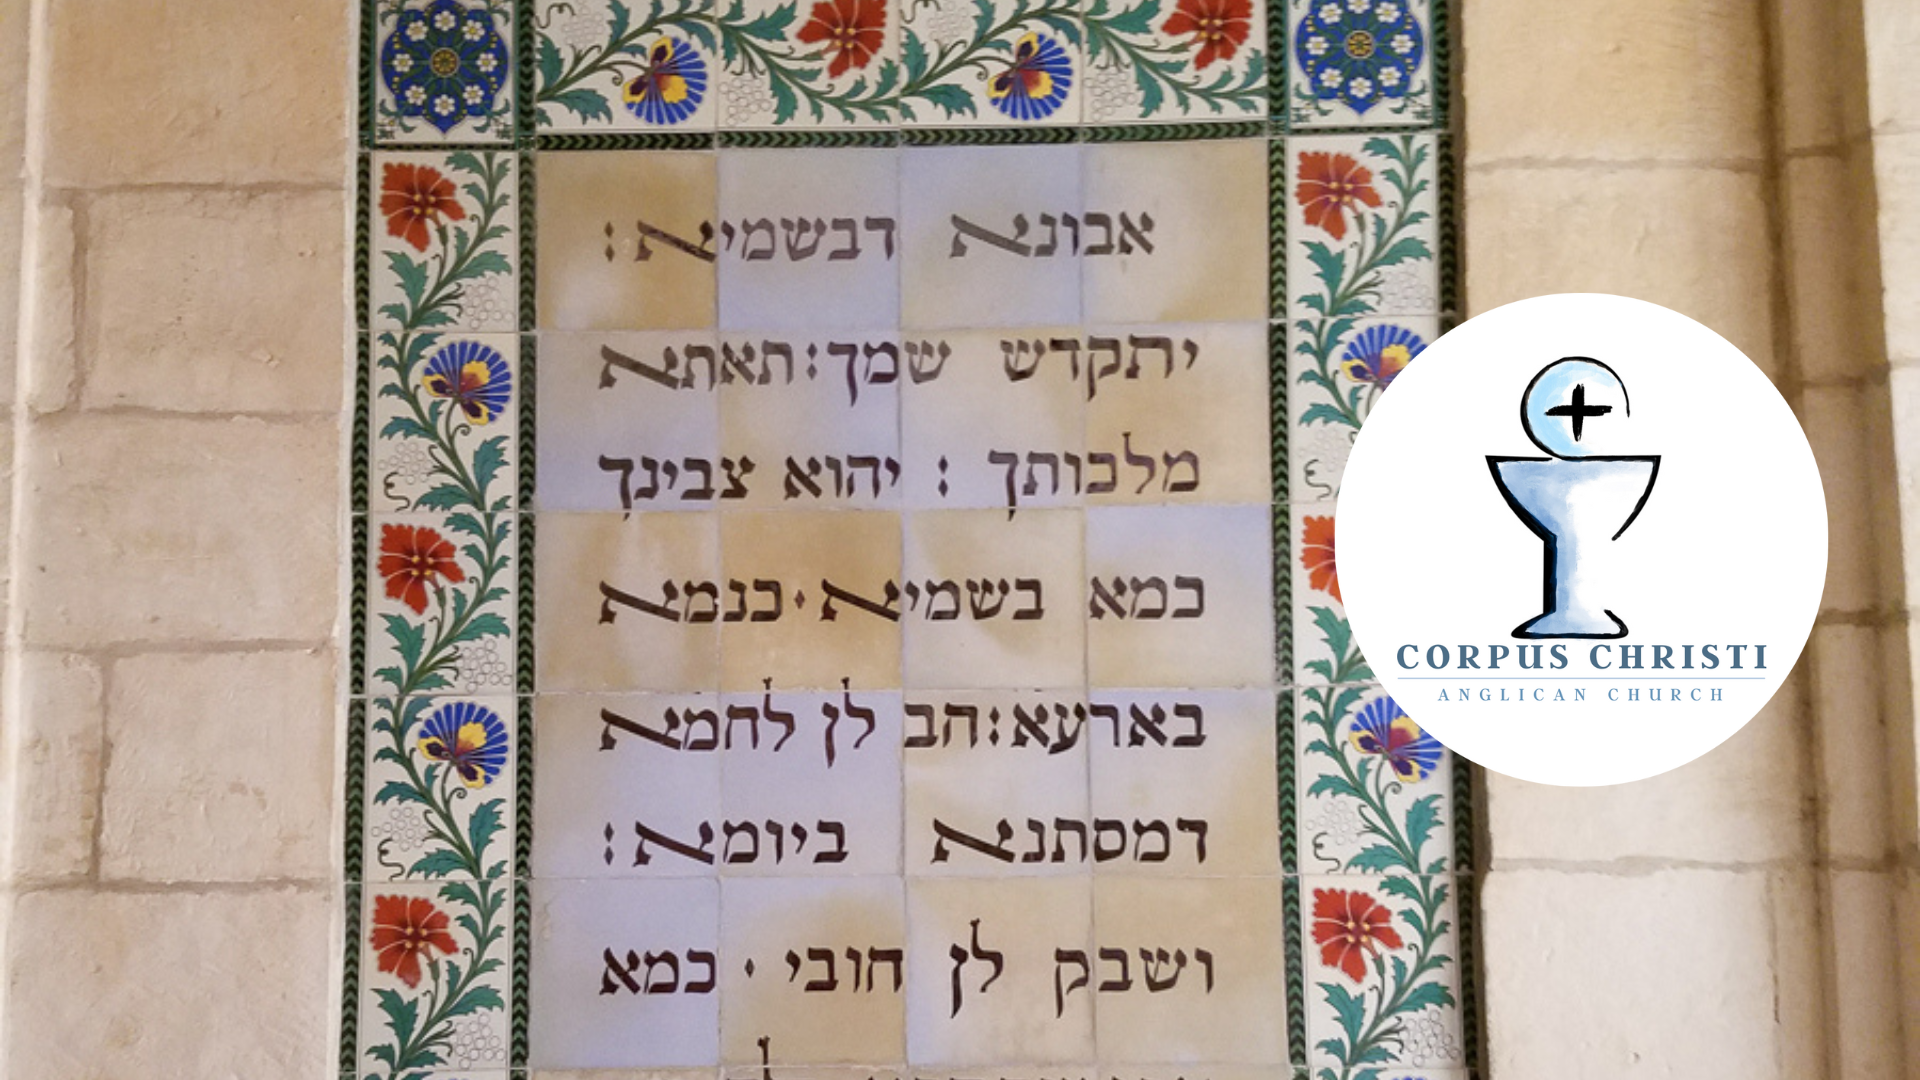 אבונא דבשמיא:
יתקדש שמך: תאתא
מלכותך : יהוא צבינך
כמא בשמיא · כנמא
בארעא: הב לן לחמא
דמסתנא ביומא:
ושבק לן חובי · כמא
CORPUS CHRISTI
ANGLICAN CHURCH